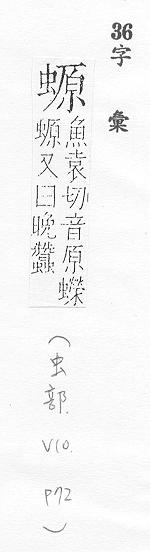 36
字彙
螈
魚袁切音原蠑
螈又曰晚蠶
(虫部. V10. P72)